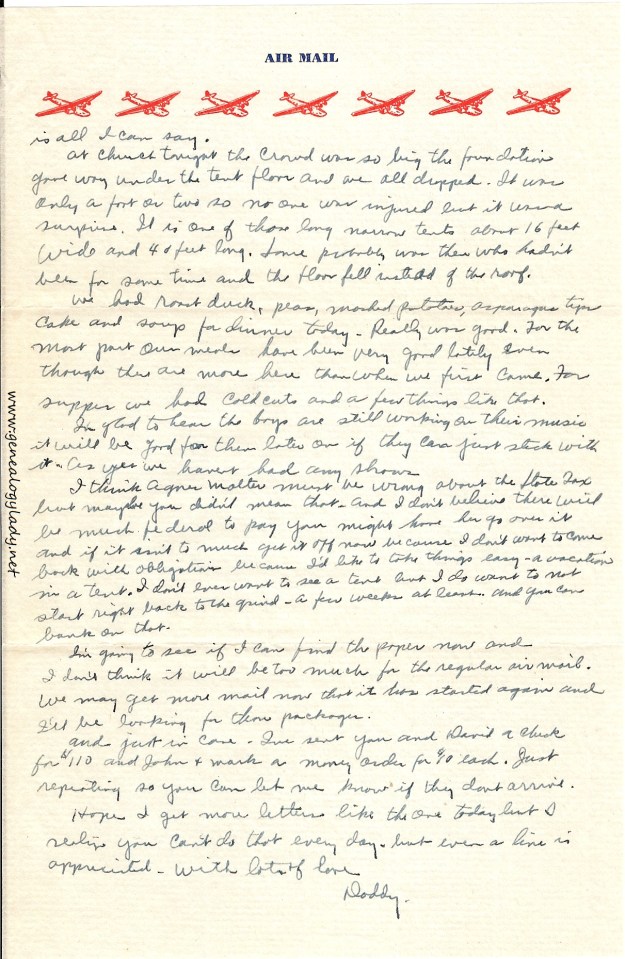 AIR MAIL
is all I can say.
At church tonight the crowd was so big the foundation
gave way under the tent floor and we all dropped. It was
only a foot or two so no one was injured but it was a
surprise. It is one of those long narrow tents about 16 feet
wide and 40 feet long. Some probably was there who hadn't
been for some time and the floor fell instead of the roof.
We had roast duck, peas, mashed potatoes, asparagus tips
cake and soup for dinner today - Really was good. For the
most part our meals have been very good lately even
though there are more here than when we first came. For
supper we had cold cuts and a few things like that.
I'm glad to hear the boys are still working on their music
it will be good for them later on if they can just stick with
it - As yet we haven't had any shows
I think Agnes Molter must be wrong about the State Tax
but maybe you didn't mean that - And I don't believe there will
be much federal to pay you might have her go over it
and if it isn't to much get it off now because I don't want to come
back with obligations because I'd like to take things easy - a vacation
in a tent. I don't ever want to see a tent but I do want to not
start right back to the grind - a few weeks at least. And you can
bank on that.
I'm going to see if I can find the paper now and
I don't think it will be too much for the regular air mail.
We may get more mail now that it has started again and
I'll be looking for those packages.
And just in case - I've sent you and David a check
for $110 and John & Mark a money order for $10 each. Just
repeating so you can let me know if they dont arrive.
Hope I get more letters like the one today but I
realize you can't do that every day - but even a line is
appreciated - With lots of love
Daddy.
www.genealogylady.net